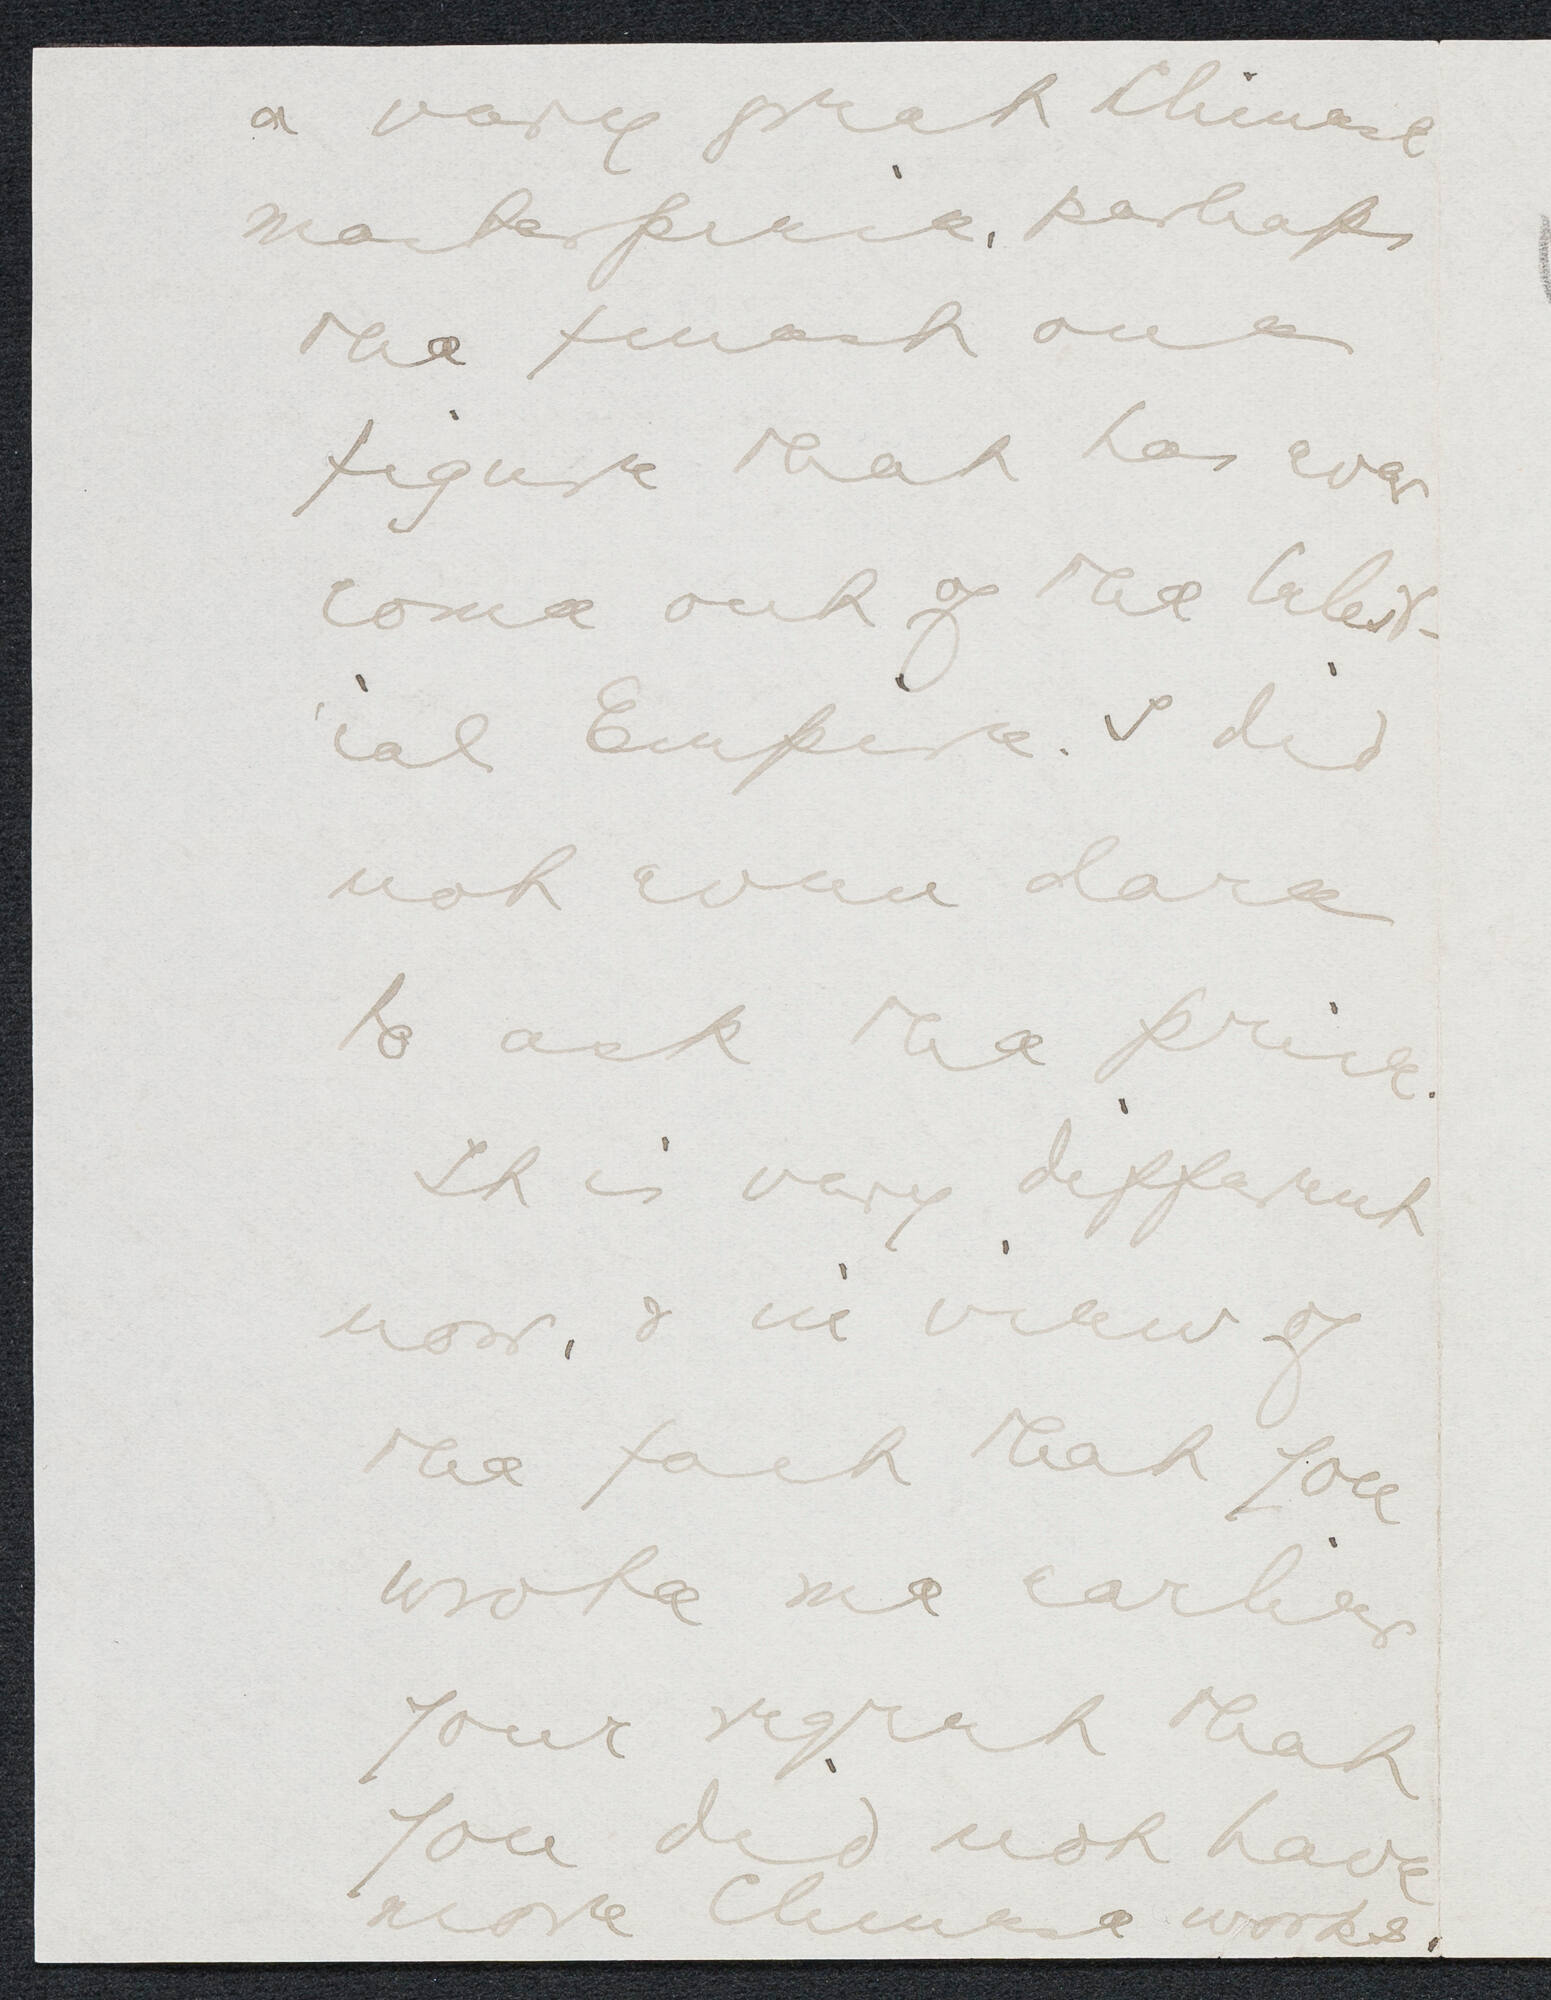 a very great Chinese
masterpiece, perhaps
the finest one
figure that has ever
come out of the Celest-
ial Empire. I did
not even dare
to ask the price.
It is very different
now, & in view of
the fact that you
wrote me earlier
your regret that
you did not have
more Chinese works,